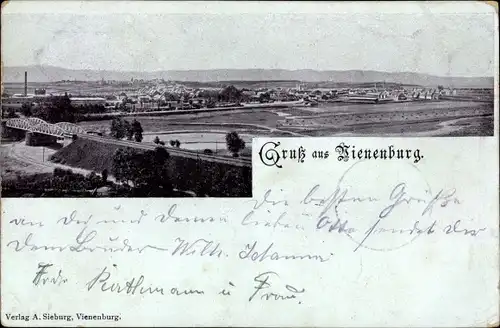 Gruß aus Vienenburg.
die besten Grüße
an dir und deinen lieben Otto sendet dir
dein Bruder Wilh.
Frdr. Rathmann u Frau.
Verlag A. Sieburg, Vienenburg.